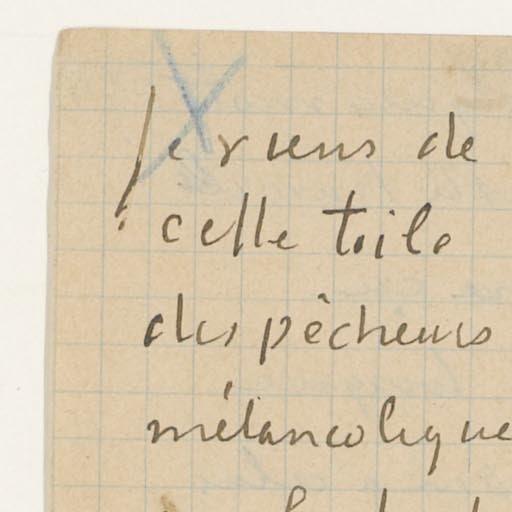 Je viens de
celle toile
des pêcheurs
mélancolique